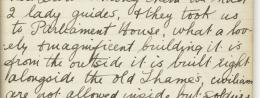 2 lady guides, & they took us
to Parliament House, what a lo-
vely & magnificent building it is
from the outside it is built right
alongside the Old Thames, civilians
are not allowed inside but soldiers